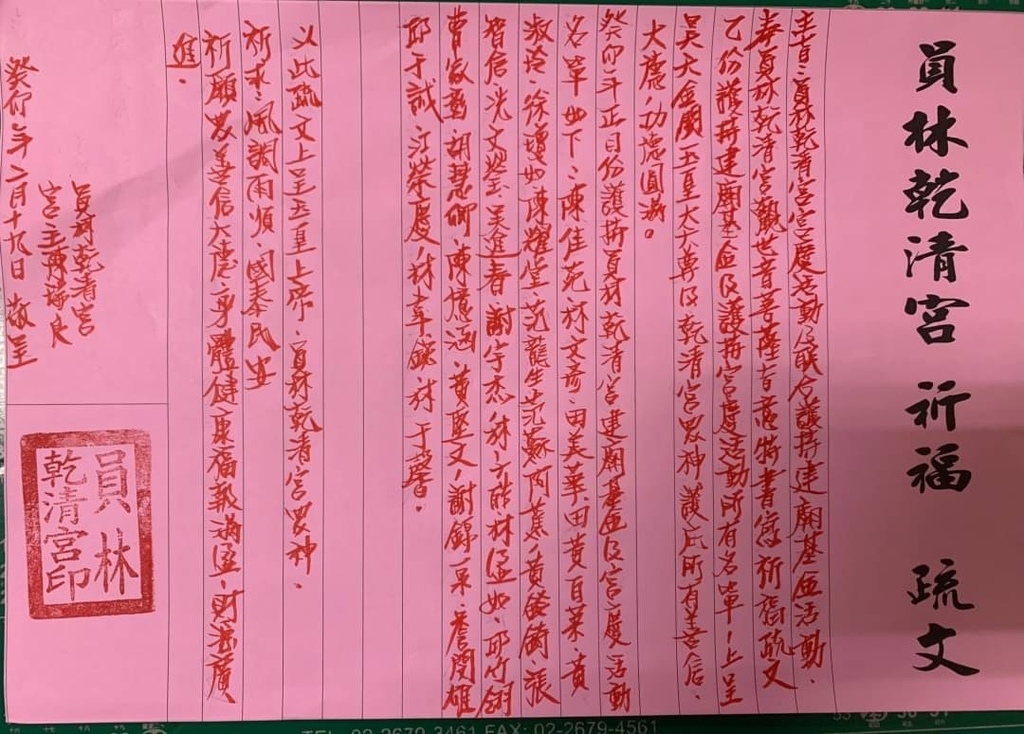 員林乾清宮 祈福 疏文
主旨：員林乾清宮宮慶活動及聯合護持建廟基金活動.
奉員林乾清宮觀世音菩薩旨意特書寫祈福疏文
乙份護持建廟基金及護持宮慶活動所有名單、上呈
昊天金闕玉皇大天尊及乾清宮眾神護庇所有善信.
大德、功德圓滿。
癸卯年正月份護持員林乾清宮建廟基金及宮慶活動
名單如下：陳佳苑、林文彥、田美華、田黃百菜、黃
淑玲、徐瓊如、陳耀堂、范龍生、范蘇阿蕉、黃 張
智信、洪文瑩、吳進春、謝宇杰、林 邱竹
曾 胡慧卿、陳憶涵、黃 文、謝錦 詹閔雄
邱于誠、江榮慶、林 林于馨.
以此疏文上呈玉皇上帝、員林乾清宮眾神.
祈求：風調雨順、國泰民安
祈願眾善信大德、身體健康福報滿溢、財源廣
進.
員林乾清宮
宮主陳 良
癸卯年二月十九日 敬呈
員林
乾清宮印
TEL: 02-2679-3461 FAX: 02-2679-4561